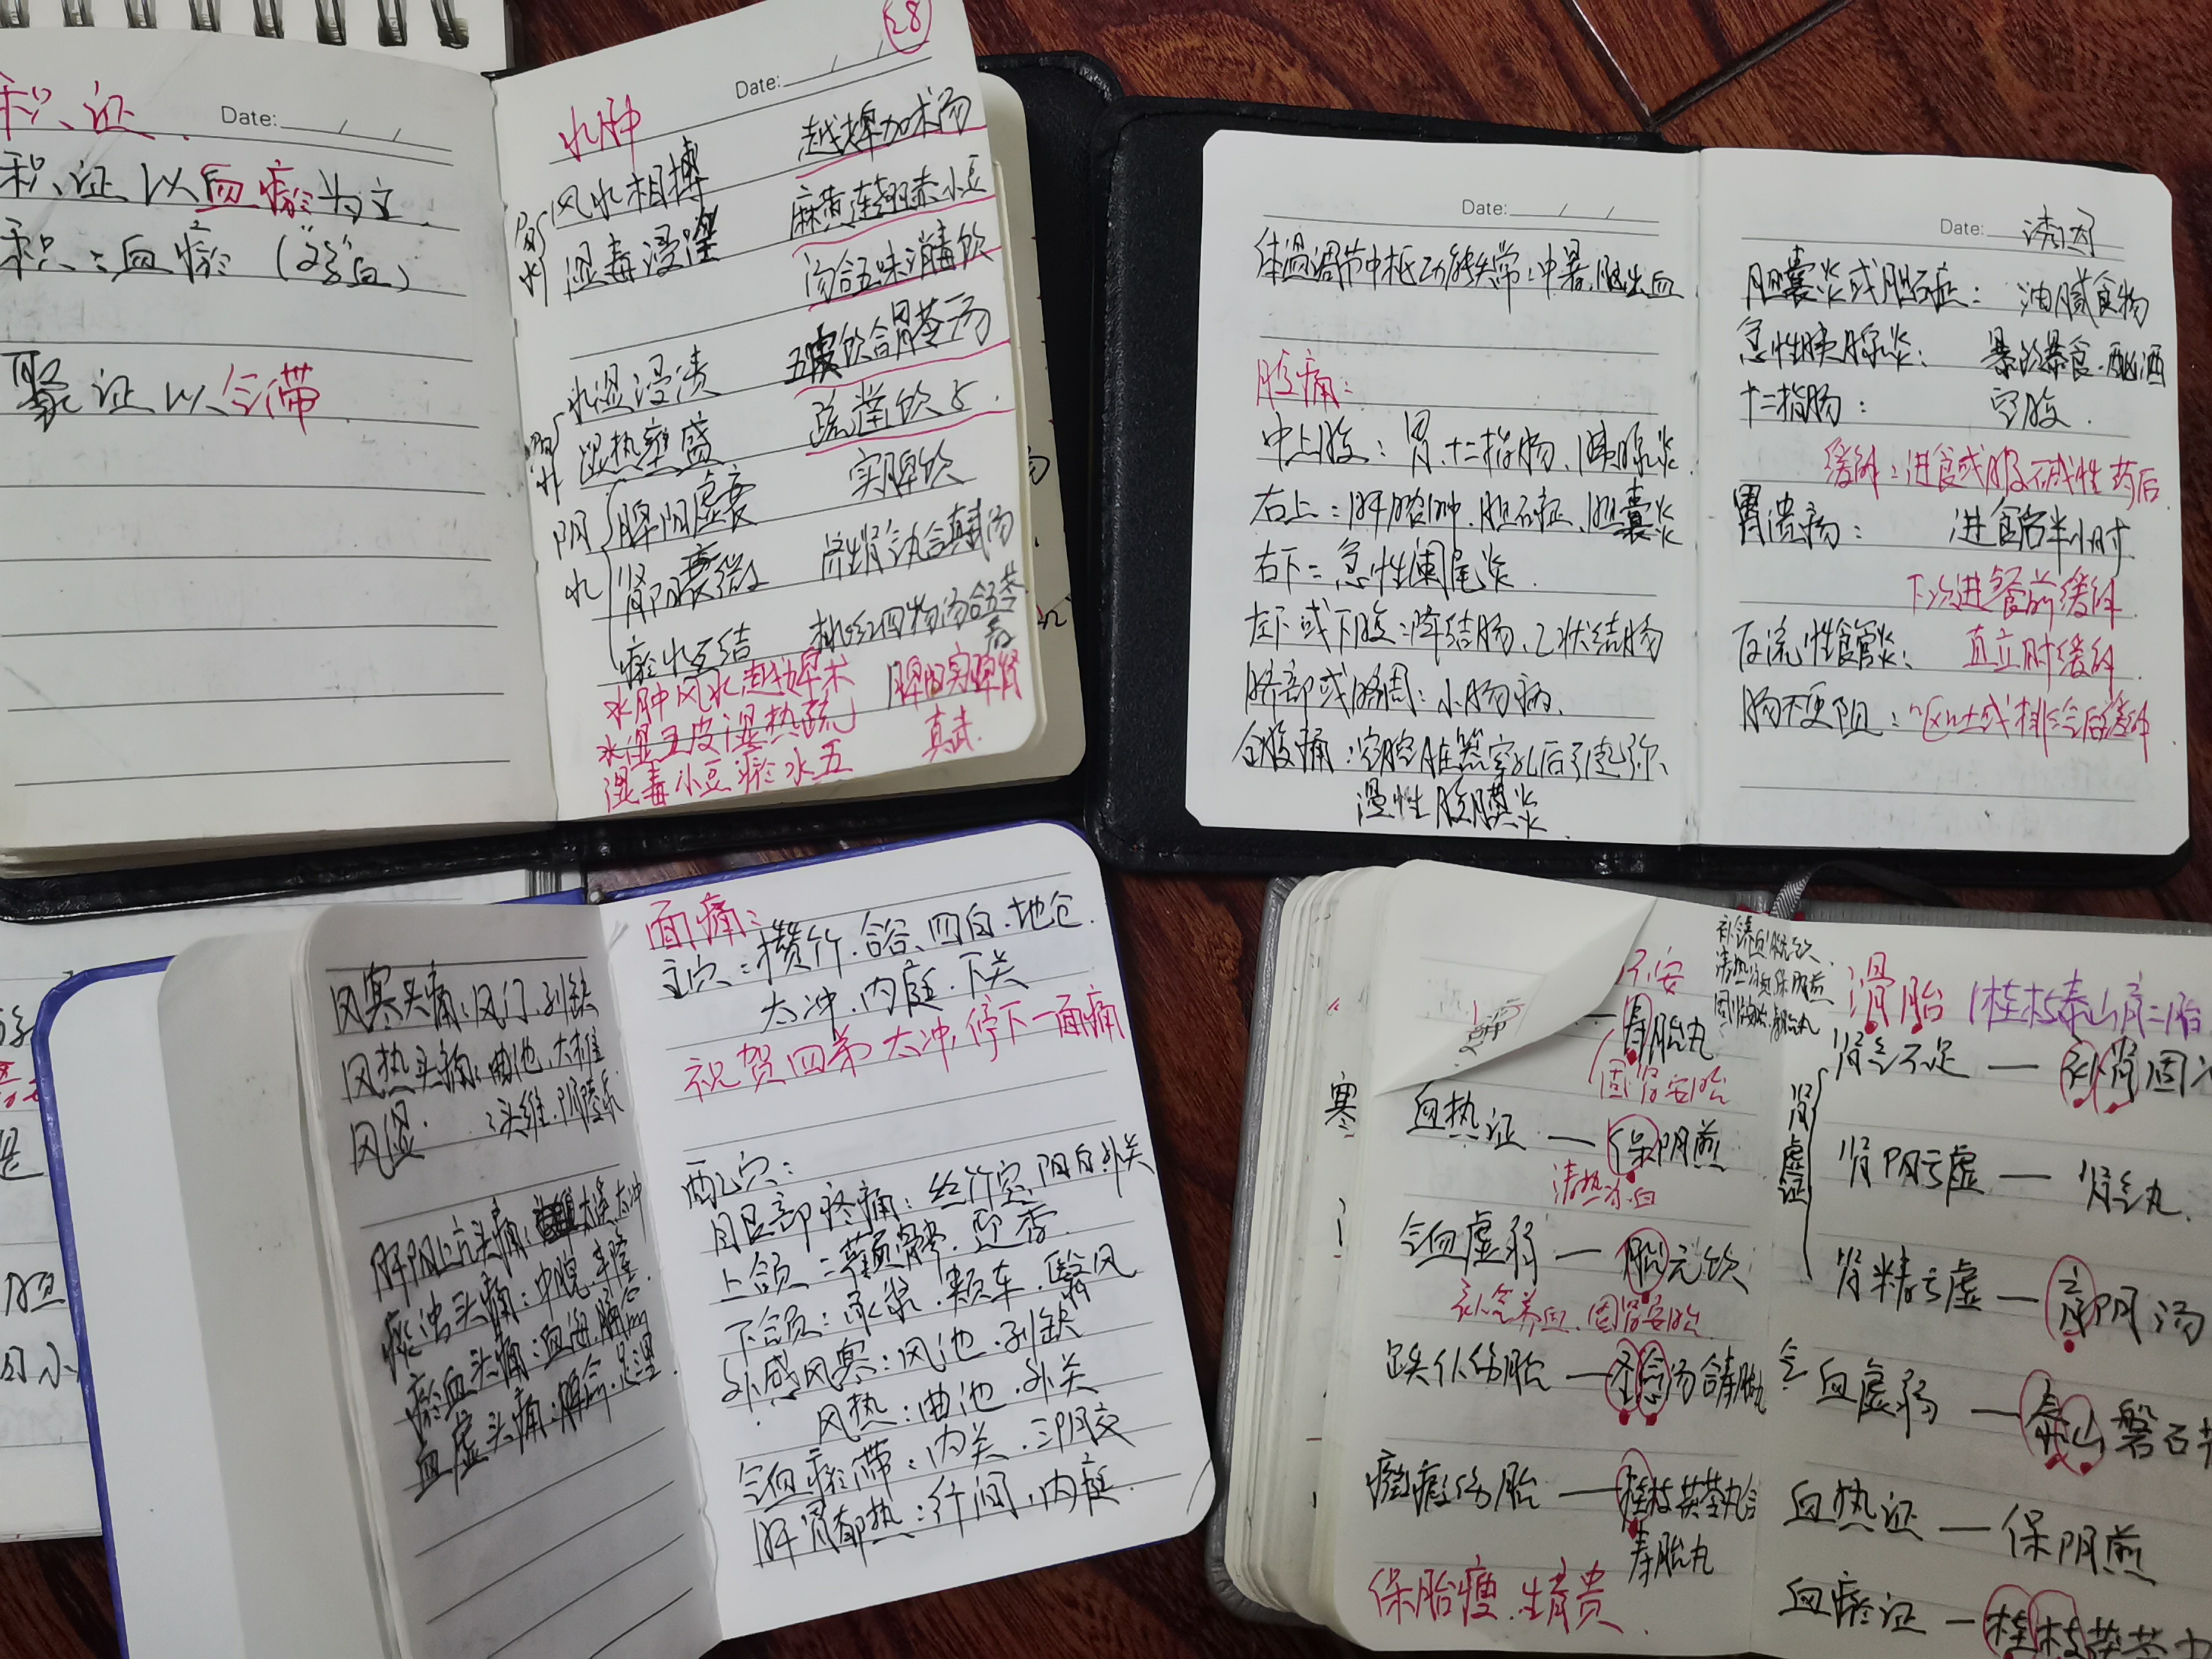 积证
Date:
积证以血瘀为主
积:血瘀
聚证以气滞
28
Date:
水肿
越婢加术汤
风水相搏
麻黄连翘赤小豆
湿毒浸淫
汤合五味消毒饮
阳水
水湿浸渍
五皮饮合胃苓汤
湿热壅盛
疏凿饮子
阴水
脾阳虚衰
实脾饮
肾阳衰微
济生肾气丸合真武汤
瘀水互结
桃红四物汤合五苓散
水肿风水越婢术
水湿五皮湿热疏
湿毒小豆瘀水五
脾阳实脾肾
真武
Date:
体温调节中枢功能失常:中暑、脑出血
腹痛:
中上腹:胃、十二指肠、胰腺炎
右上:肝脓肿、胆石症、胆囊炎
右下:急性阑尾炎
左下或下腹:降结肠、乙状结肠
脐部或脐周:小肠病、
全腹痛:空腔脏器穿孔后引起弥
漫性腹膜炎
Date: 诱因
胆囊炎或胆石症: 油腻食物
急性胰腺炎: 暴饮暴食、酗酒
十二指肠: 空腹
缓解:进食或服碱性药后
胃溃疡: 进食后半小时
下次进餐前缓解
反流性食管炎: 直立时缓解
肠梗阻:呕吐或排气后缓解
风寒头痛:风门、列缺
风热头痛:曲池、大椎
风湿:头维、阴陵泉
肝阳上亢头痛:太溪、太冲
痰浊头痛:中脘、丰隆
瘀血头痛:血海、膈俞
血虚头痛:脾俞、足三里
面痛:
主穴:攒竹、合谷、四白、地仓
太冲、内庭、下关
祝贺四弟太冲,停下一面痛
配穴:
目区部疼痛:丝竹空、阳白、外关
上颌:颧髎、迎香
下颌:承浆、颊车、翳风
外感风寒:风池、列缺
风热:曲池、外关
气血瘀滞:内关、三阴交
肝胃郁热:行间、内庭
不安
寿胎丸
固肾安胎
血热证—保阴煎
清热凉血
气血虚弱—胎元饮
补气养血、固肾安胎
跌仆伤胎—圣愈汤合寿胎丸
癥瘕伤胎—桂枝茯苓丸合
寿胎丸
保胎瘦,生育贵
寒
滑胎
肾虚证
肾气不足—补肾固
肾阳亏虚—肾气丸
肾精亏虚—育阴汤
气血虚弱—泰山磐石
血热证—保阴煎
血瘀证—桂枝茯苓